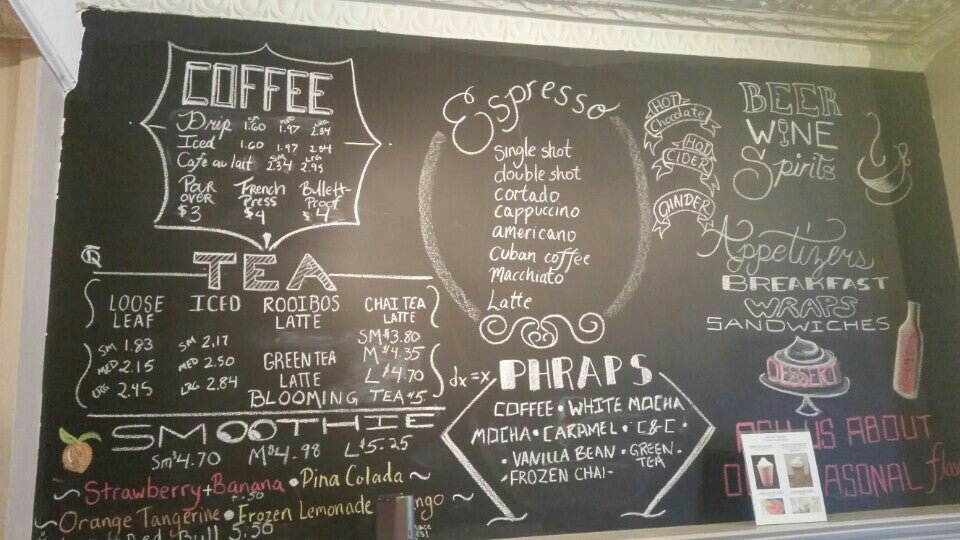 COFFEE
Drip 1.60 1.97 2.34
Iced 1.60 1.97 2.34
Cafe au lait 2.34 2.95
POUR OVER $3
French Press $4
Bullet-Proof $4
TEA
LOOSE LEAF
SM 1.83
MED 2.15
LRG 2.45
ICED
SM 2.17
MED 2.50
LRG 2.84
ROOIBOS LATTE
GREEN TEA LATTE
CHAI TEA LATTE
SM $3.80
M $4.35
L $4.70
BLOOMING TEA $5
SMOOTHIE
Sm $4.70 M $4.98 L $5.25
Strawberry + Banana • Pina Colada
Orange Tangerine • Frozen Lemonade
Red Bull 5.50
Espresso
Single shot
double shot
cortado
cappuccino
americano
Cuban coffee
Macchiato
Latte
dx = x PHRAPS
COFFEE • WHITE MOCHA
MOCHA • CARAMEL • C&C •
• VANILLA BEAN • GREEN TEA
• FROZEN CHAI
HOT Chocolate
HOT CIDER
CHAIDER
BEER
WINE
Spirits
Appetizers
BREAKFAST
WRAPS
SANDWICHES
ASK US ABOUT